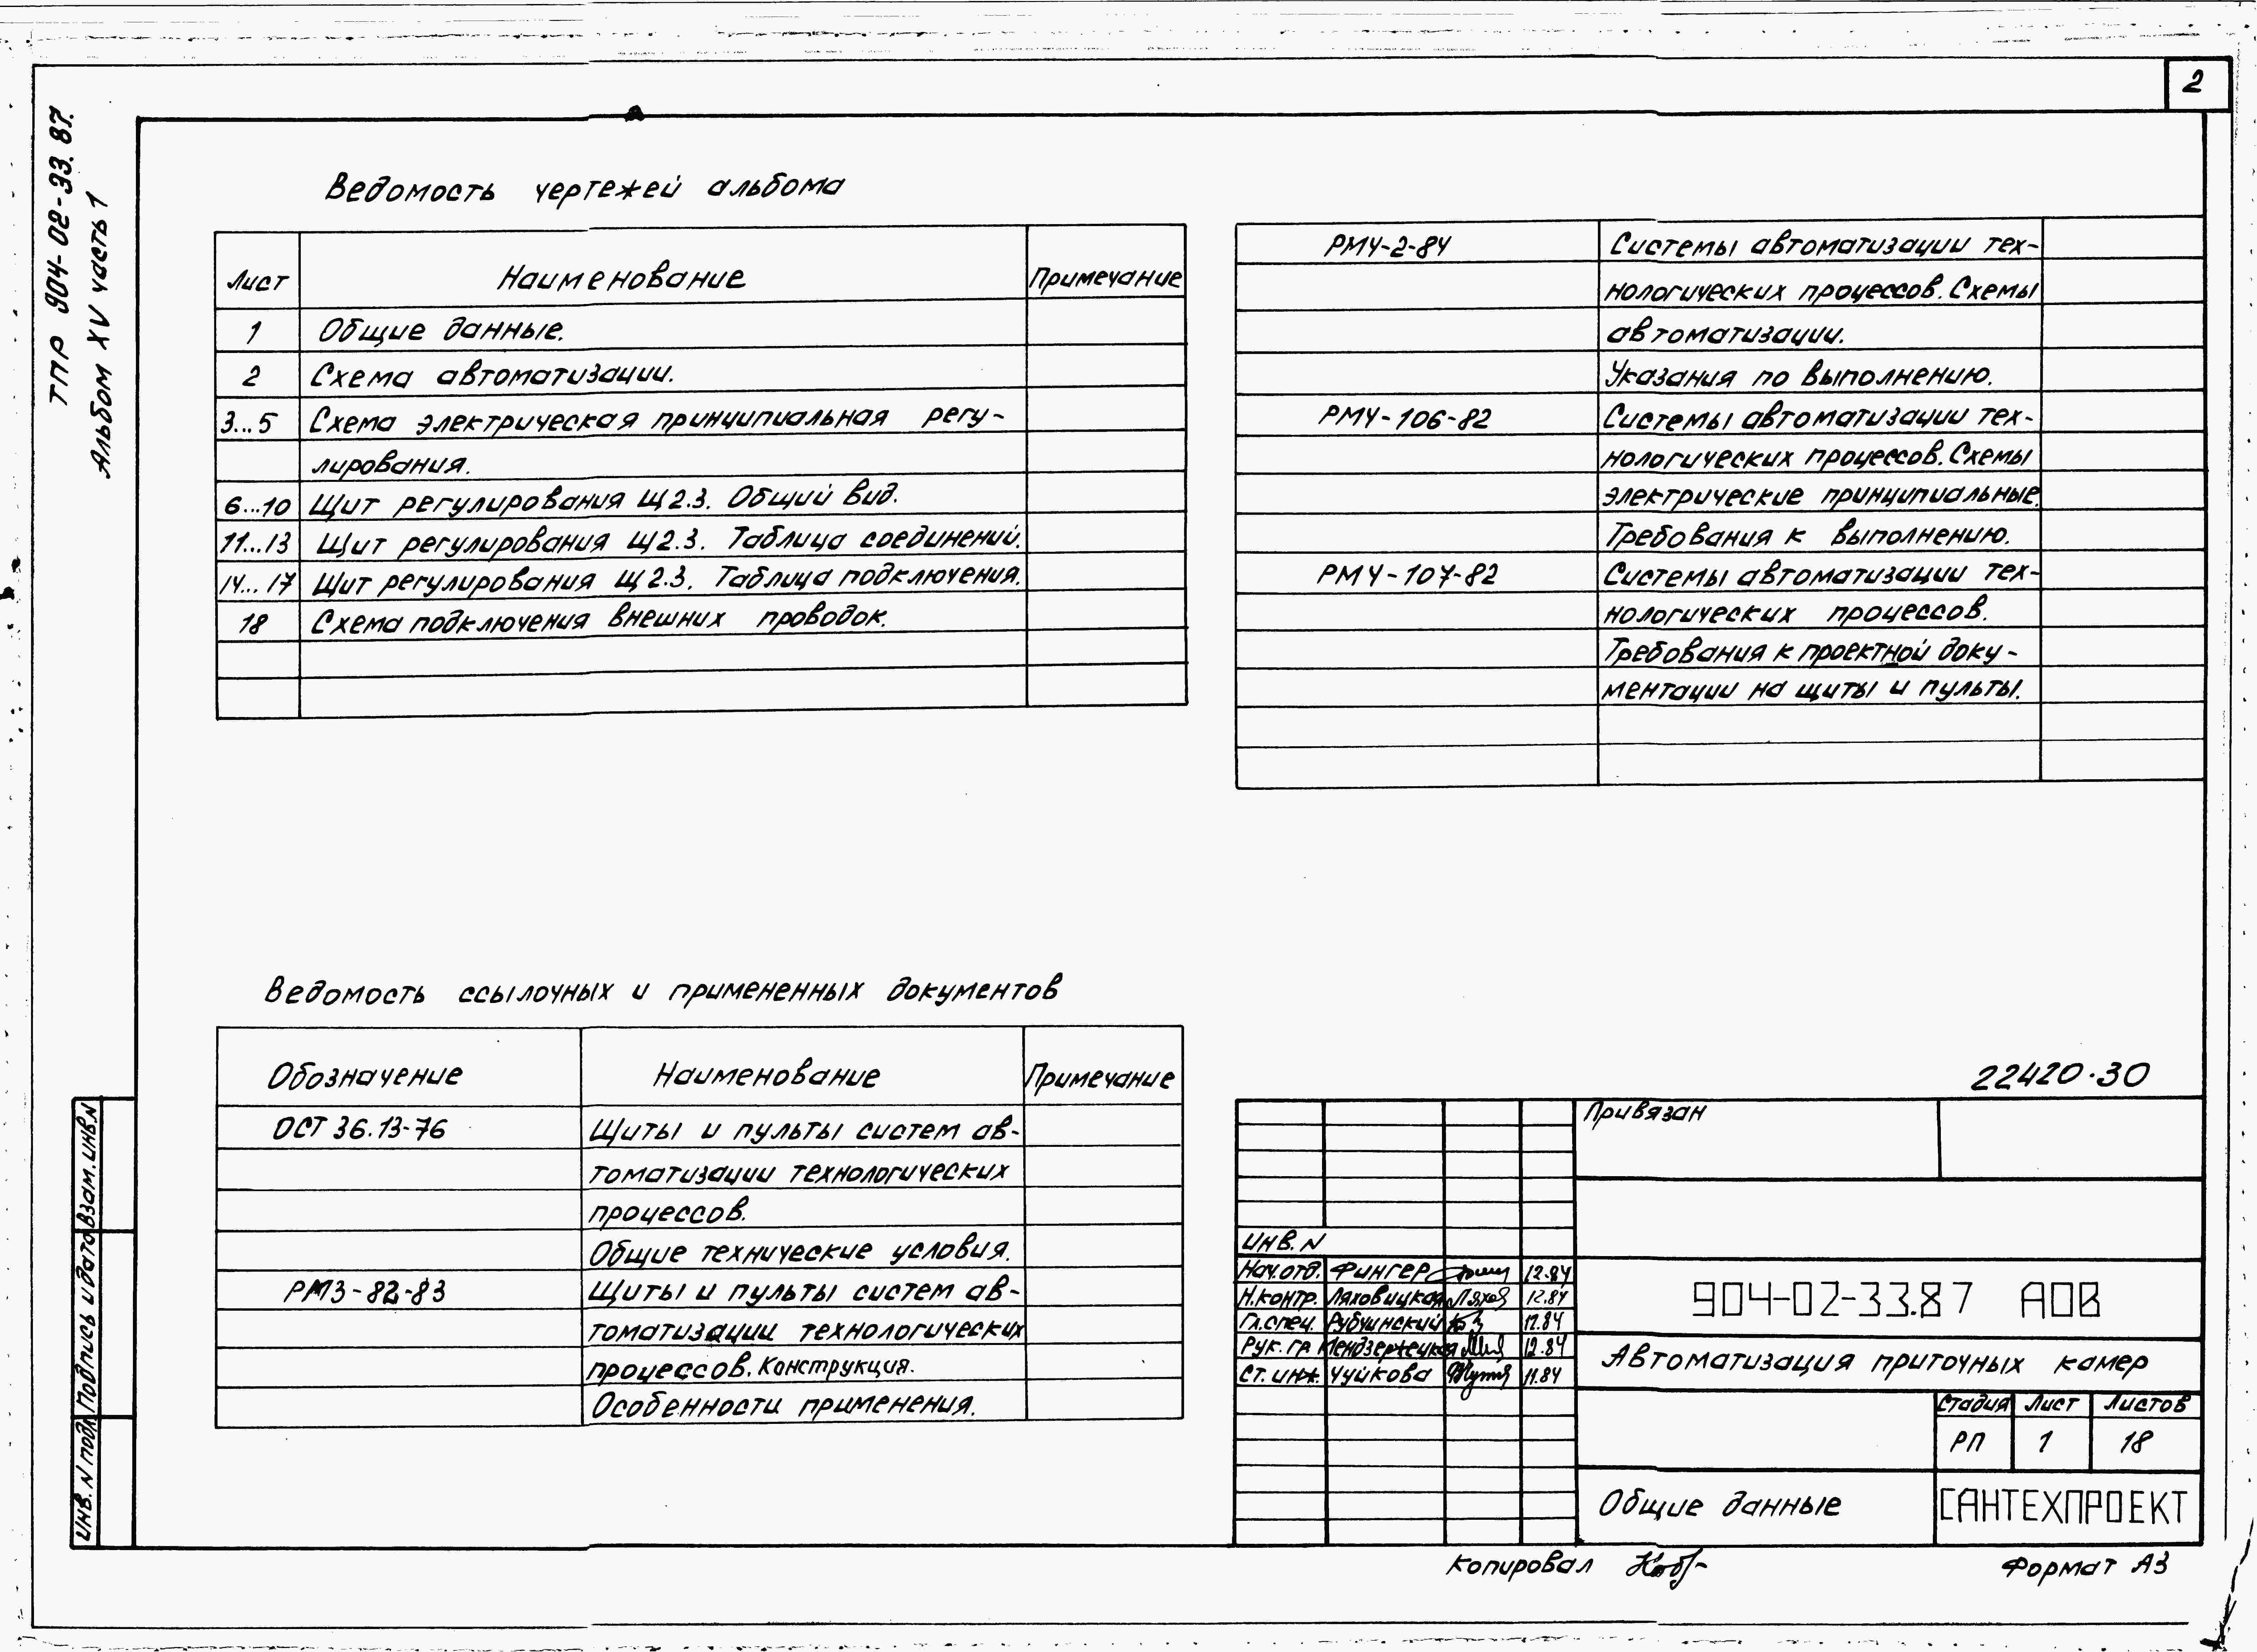 2
ТПР 904-02-33.87.
Альбом XV часть 1
Ведомость чертежей альбома
Лист Наименование Примечание
1 Общие данные.
2 Схема автоматизации.
3...5 Схема электрическая принципиальная регу-
лирования.
6...10 Щит регулирования Щ2.3. Общий вид.
11...13 Щит регулирования Щ2.3. Таблица соединений.
14...17 Щит регулирования Щ2.3. Таблица подключения.
18 Схема подключения внешних проводок.
РМ4-2-84 Системы автоматизации тех-
нологических процессов. Схемы
автоматизации.
Указания по выполнению.
РМ4-106-82 Системы автоматизации тех-
нологических процессов. Схемы
электрические принципиальные.
Требования к выполнению.
РМ4-107-82 Системы автоматизации тех-
нологических процессов.
Требования к проектной доку-
ментации на щиты и пульты.
Ведомость ссылочных и примененных документов
Обозначение Наименование Примечание
ОСТ 36.13-76 Щиты и пульты систем ав-
томатизации технологических
процессов.
Общие технические условия.
РМ3-82-83 Щиты и пульты систем ав-
томатизации технологических
процессов. Конструкция.
Особенности применения.
22420-30
Привязан
Инв. N
Нач.отд. Фингер 12.84
Н.контр. Ляховицкая 12.84
Гл.спец. Рубчинский 12.84
Рук. гр. 12.84
Ст. инж. Чуйкова 11.84
904-02-33.87 АОВ
Автоматизация приточных камер
Стадия Лист Листов
РП 1 18
Общие данные
САНТЕХПРОЕКТ
Копировал
Формат А3
Взам. инв. N
Подпись и дата
Инв. N подл.